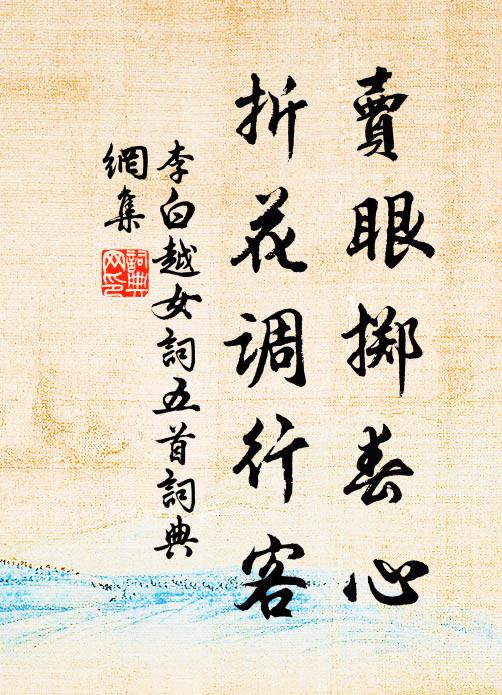 賣眼掷春心
折花调行客
李白越女詞五首詞典
網集
詞典网印